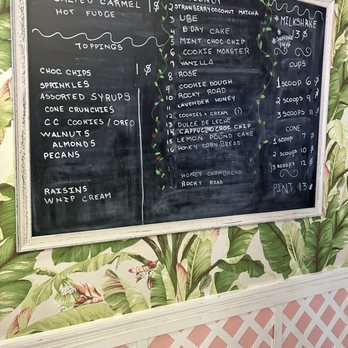 SALTED CARAMEL
HOT FUDGE
TOPPINGS
1 $
CHOC CHIPS
SPRINKLES
ASSORTED SYRUPS
CONE CRUNCHIES
C C COOKIES / OREO
WALNUTS
ALMONDS
PECANS
RAISINS
WHIP CREAM
STRAWBERRY COCONUT MATCHA
3 UBE
4 B'DAY CAKE
5 MINT CHOC CHIP
6 COOKIE MONSTER
7 VANILLA
8 ROSE
9 COOKIE DOUGH
10 ROCKY ROAD
11 LAVENDER HONEY
12 COOKIES + CREAM
13 DULCE DE LECHE
14 CAPPUCCINO CHIP
15 LEMON POUND CAKE
16 HONEY CORNBREAD
HONEY CORNBREAD
ROCKY ROAD
MILKSHAKE
13 $
CUPS
1 SCOOP 6 $
2 SCOOPS 9 $
3 SCOOPS 12 $
CONE
1 SCOOP 7 $
2 SCOOPS 10 $
3 SCOOPS 13 $
PINT 13 $